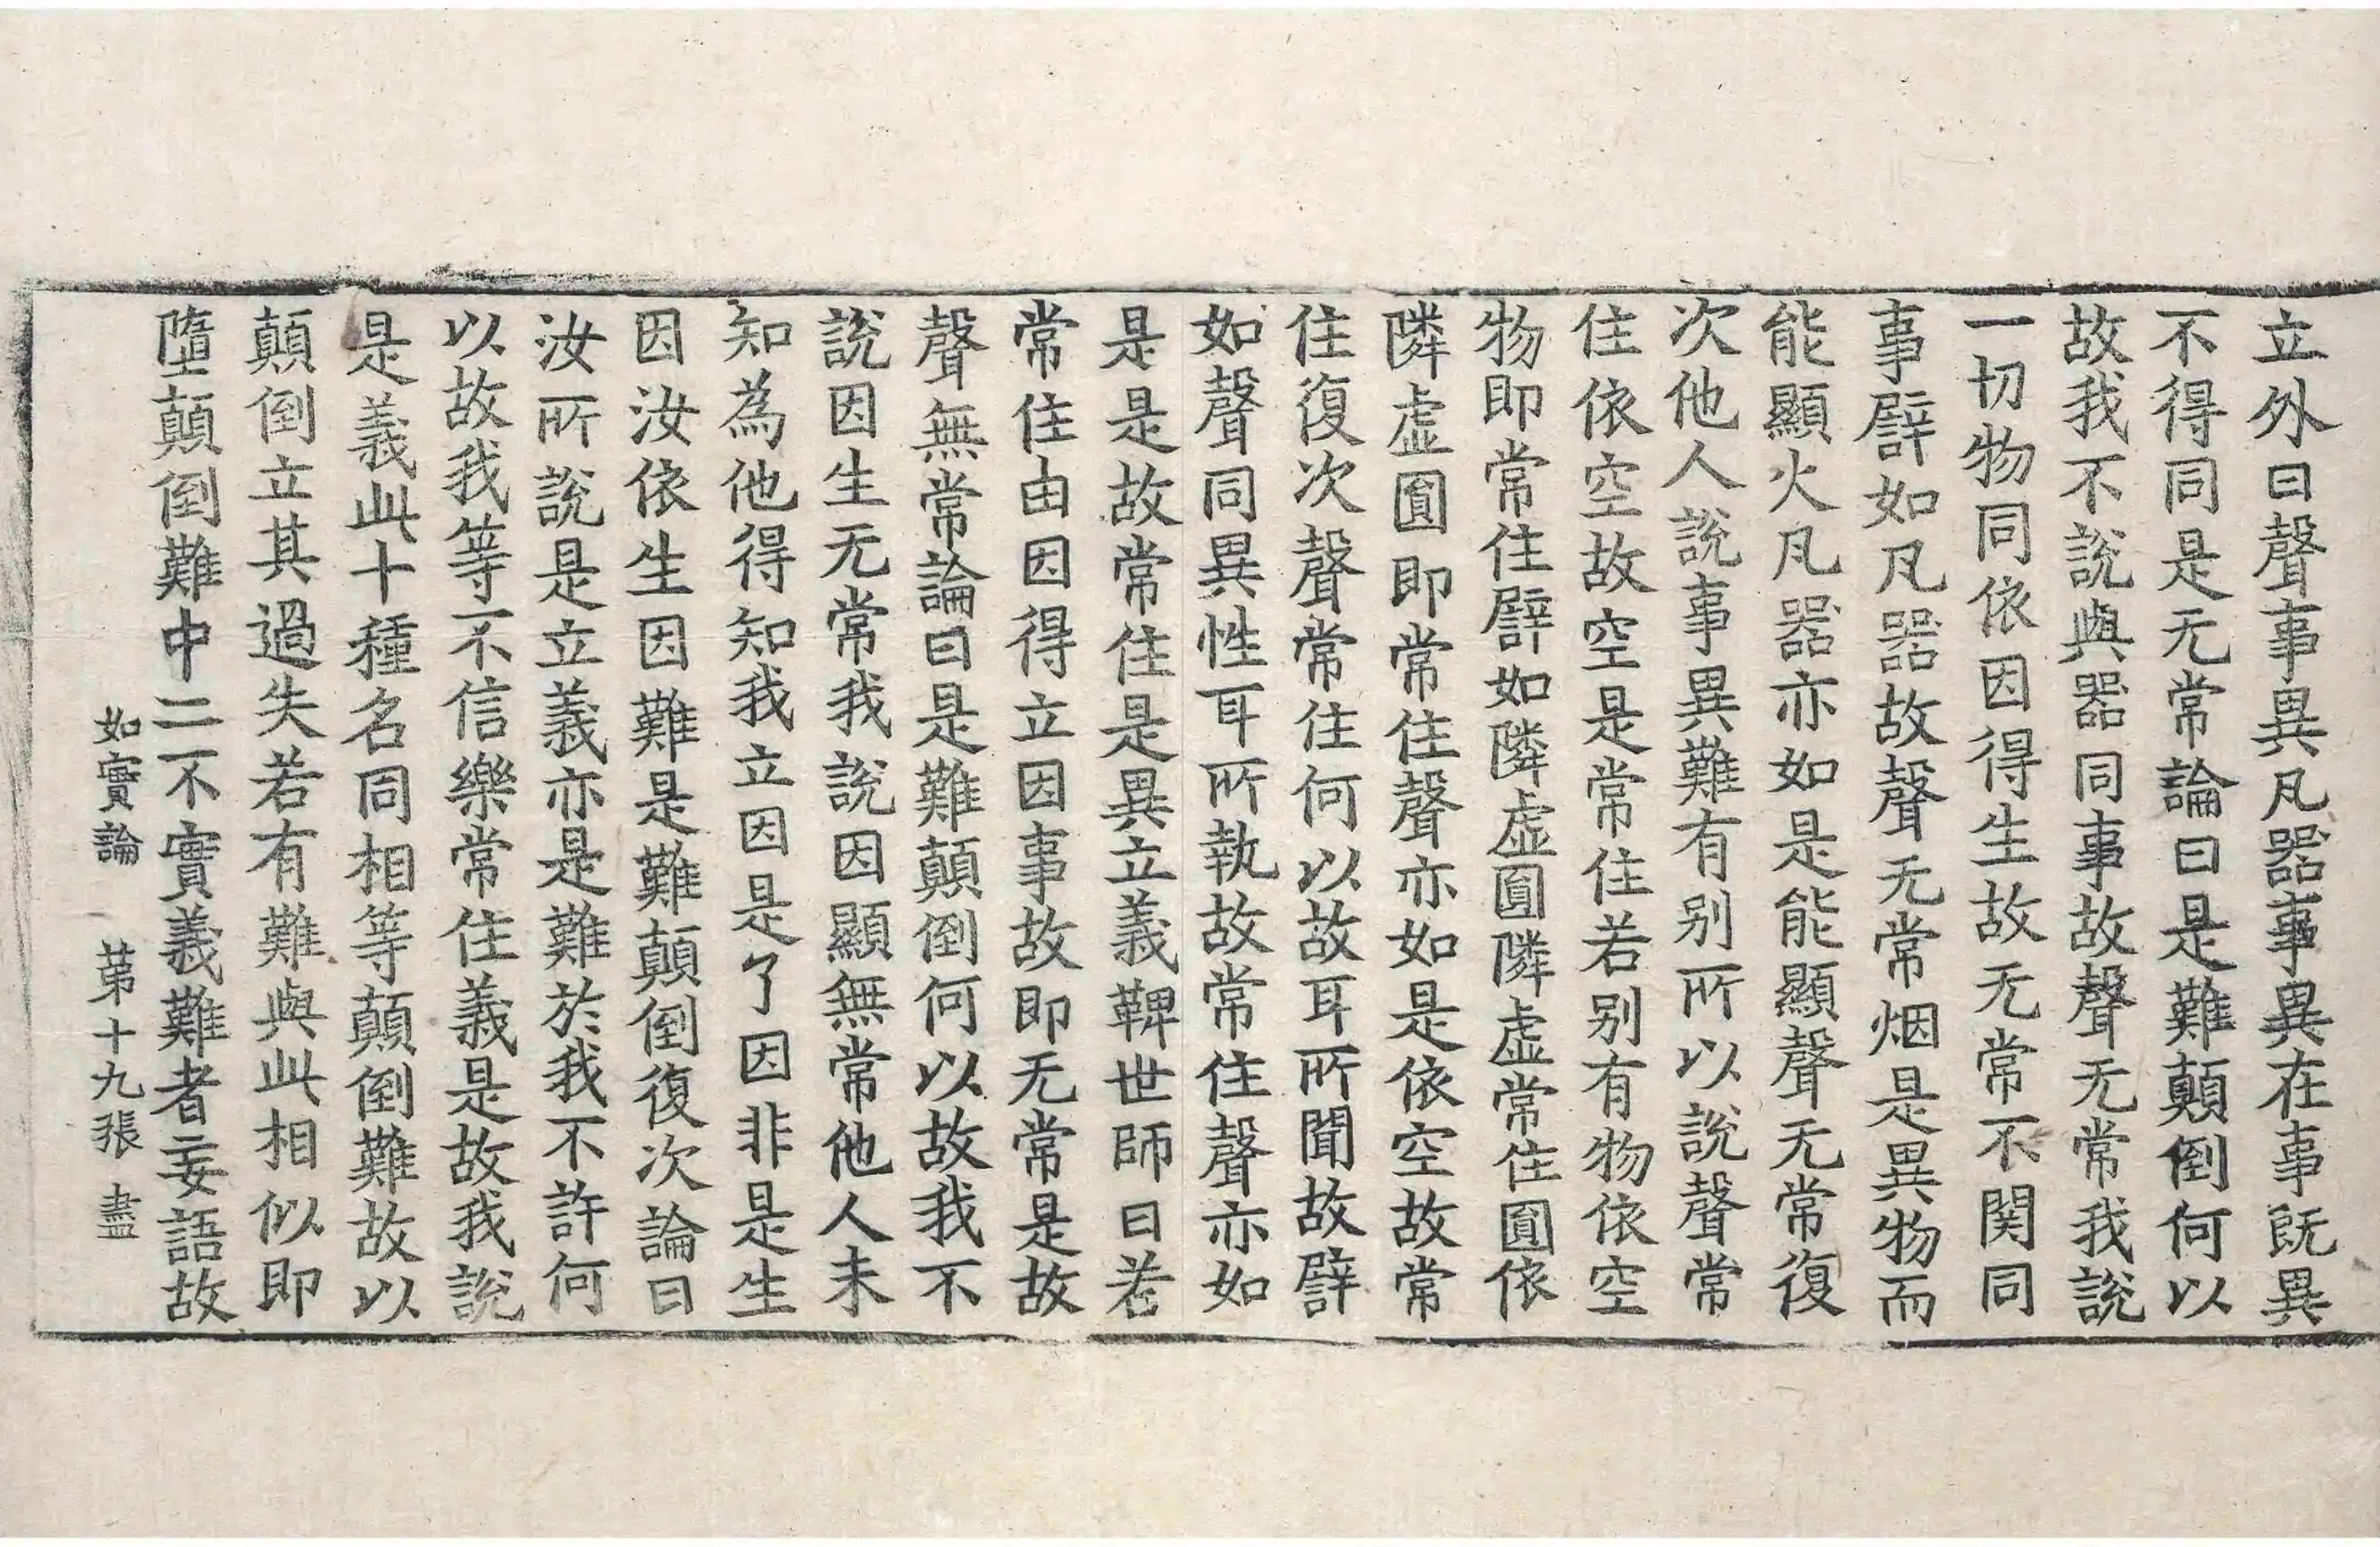 立外曰聲事異凡器事異在事既異
不得同是无常論曰是難顛倒何以
故我不說與器同事故聲无常我說
一切物同依因得生故无常不関同
事譬如凡器故聲无常烟是異物而
能顯火凡器亦如是能顯聲无常復
次他人說事異難有別所以說聲常
住依空故空是常住若別有物依空
物即常住譬如隣虛圓隣虛常住圓依
隣虛圓即常住聲亦如是依空故常
住復次聲常住何以故耳所聞故譬
如聲同異性耳所執故常住聲亦如
是是故常住是異立義鞞世師曰若
常住由因得立因事故即无常是故
聲無常論曰是難顛倒何以故我不
說因生无常我說因顯無常他人未
知為他得知我立因是了因非是生
因汝依生因難是難顛倒復次論曰
汝所說是立義亦是難於我不許何
以故我等不信樂常住義是故我說
是義此十種名同相等顛倒難故以
顛倒立其過失若有難與此相似即
墮顛倒難中二不實義難者妄語故
如實論　第十九張　盡